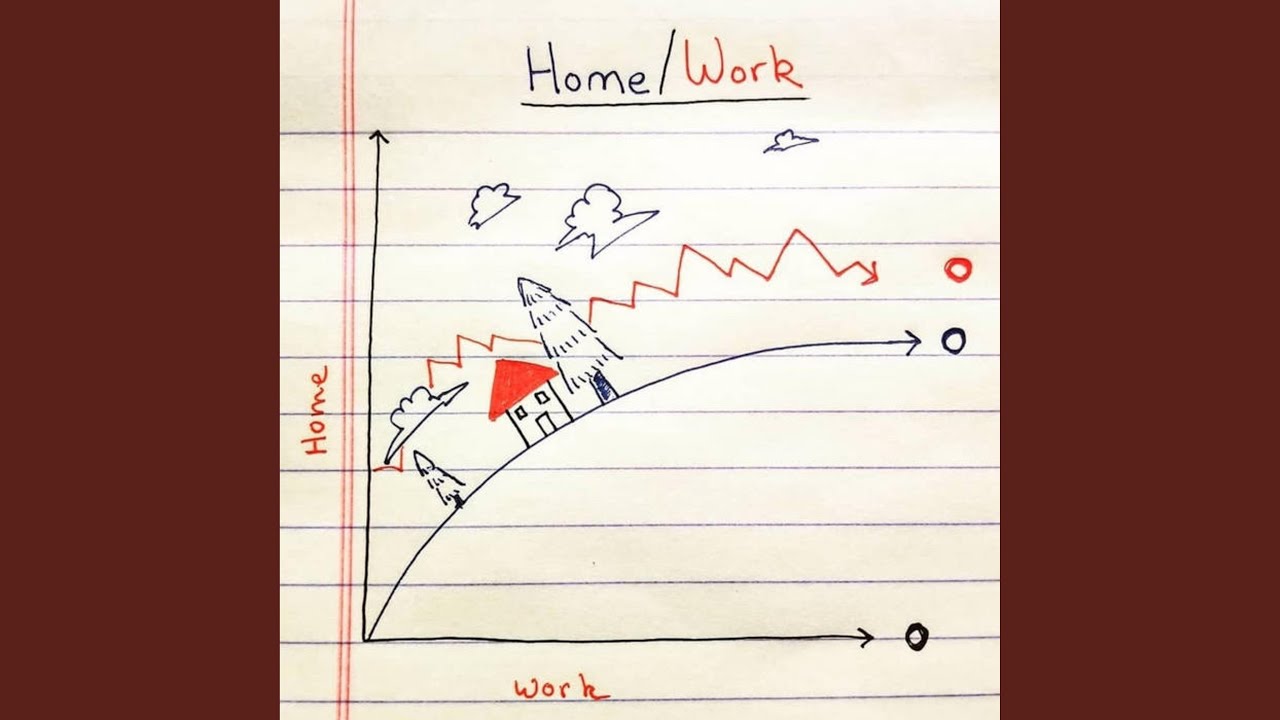 Home/Work
Home
Work